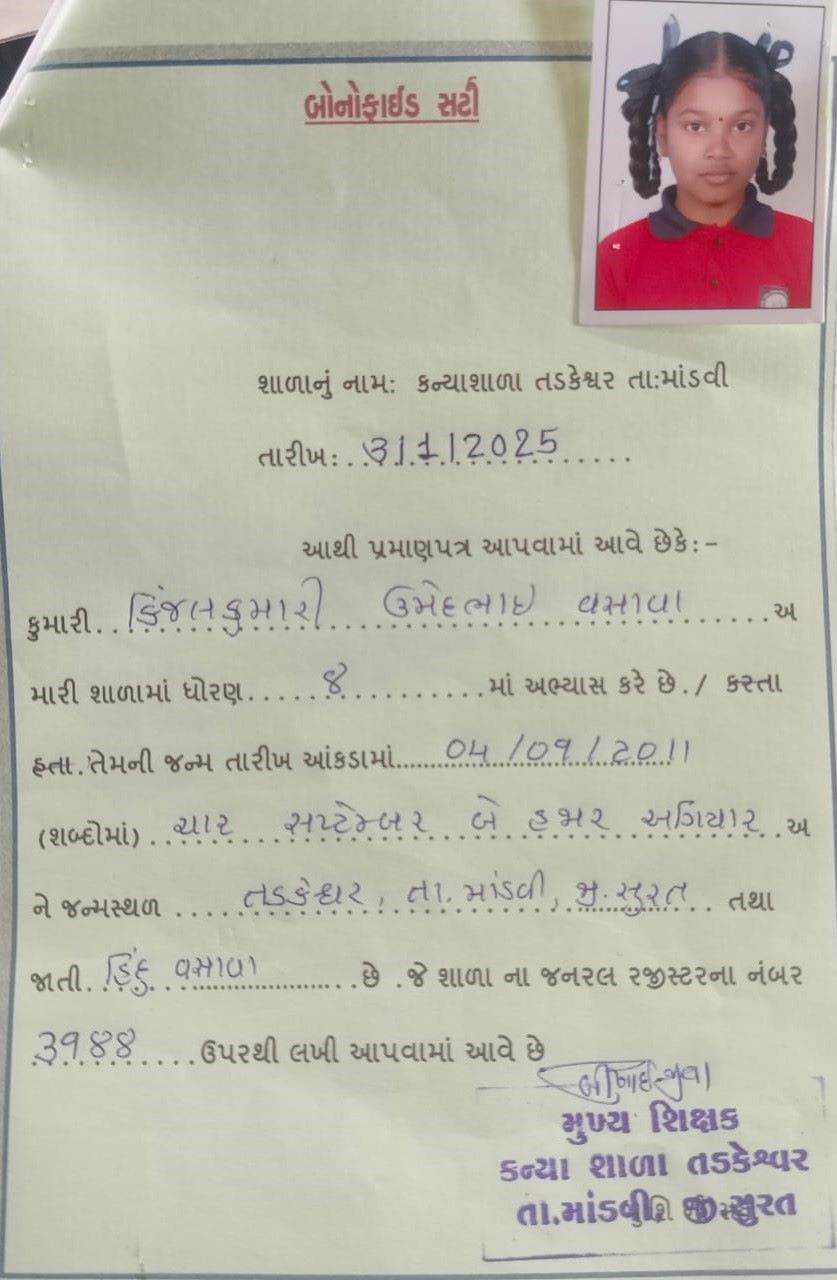 બોનોફાઈડ સર્ટી
શાળાનું નામ: કન્યાશાળા તડકેશ્વર તા:માંડવી
તારીખ:..૩|1|2025.....
આથી પ્રમાણપત્ર આપવામાં આવે છેકે:-
કુમારી..કિંજલકુમારી ઉમેદભાઇ વસાવા......અ
મારી શાળામાં ધોરણ.....૪..........માં અભ્યાસ કરે છે./ કરતા
હતા.તેમની જન્મ તારીખ આંકડામાં......04/09/2011
(શબ્દોમાં)..ચાર સપ્ટેમ્બર બે હજાર અગિયાર..અ
ને જન્મસ્થળ ....તડકેશ્વર, તા.માંડવી, જી.સુરત.. તથા
જાતી.હિંદુ વસાવા.......છે .જે શાળા ના જનરલ રજીસ્ટરના નંબર
૩૧૪૪....ઉપરથી લખી આપવામાં આવે છે
મુખ્ય શિક્ષક
કન્યા શાળા તડકેશ્વર
તા.માંડવી, જી સુરત